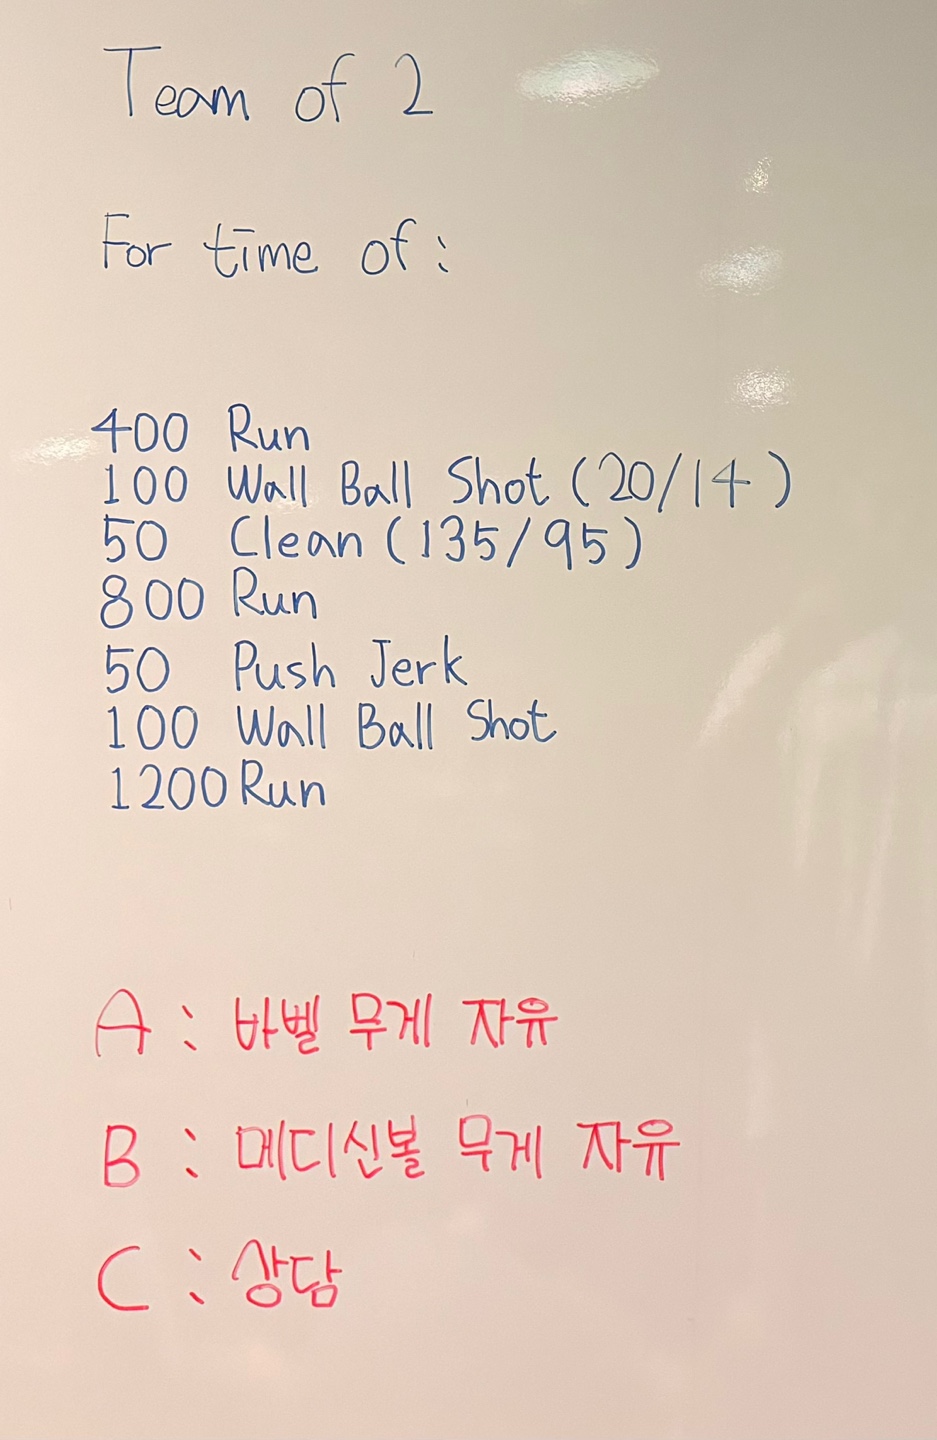 Team of 2
For time of:
400 Run
100 Wall Ball Shot (20/14)
50 Clean (135/95)
800 Run
50 Push Jerk
100 Wall Ball Shot
1200 Run
A : 바벨 무게 자유
B : 메디신볼 무게 자유
C : 상담